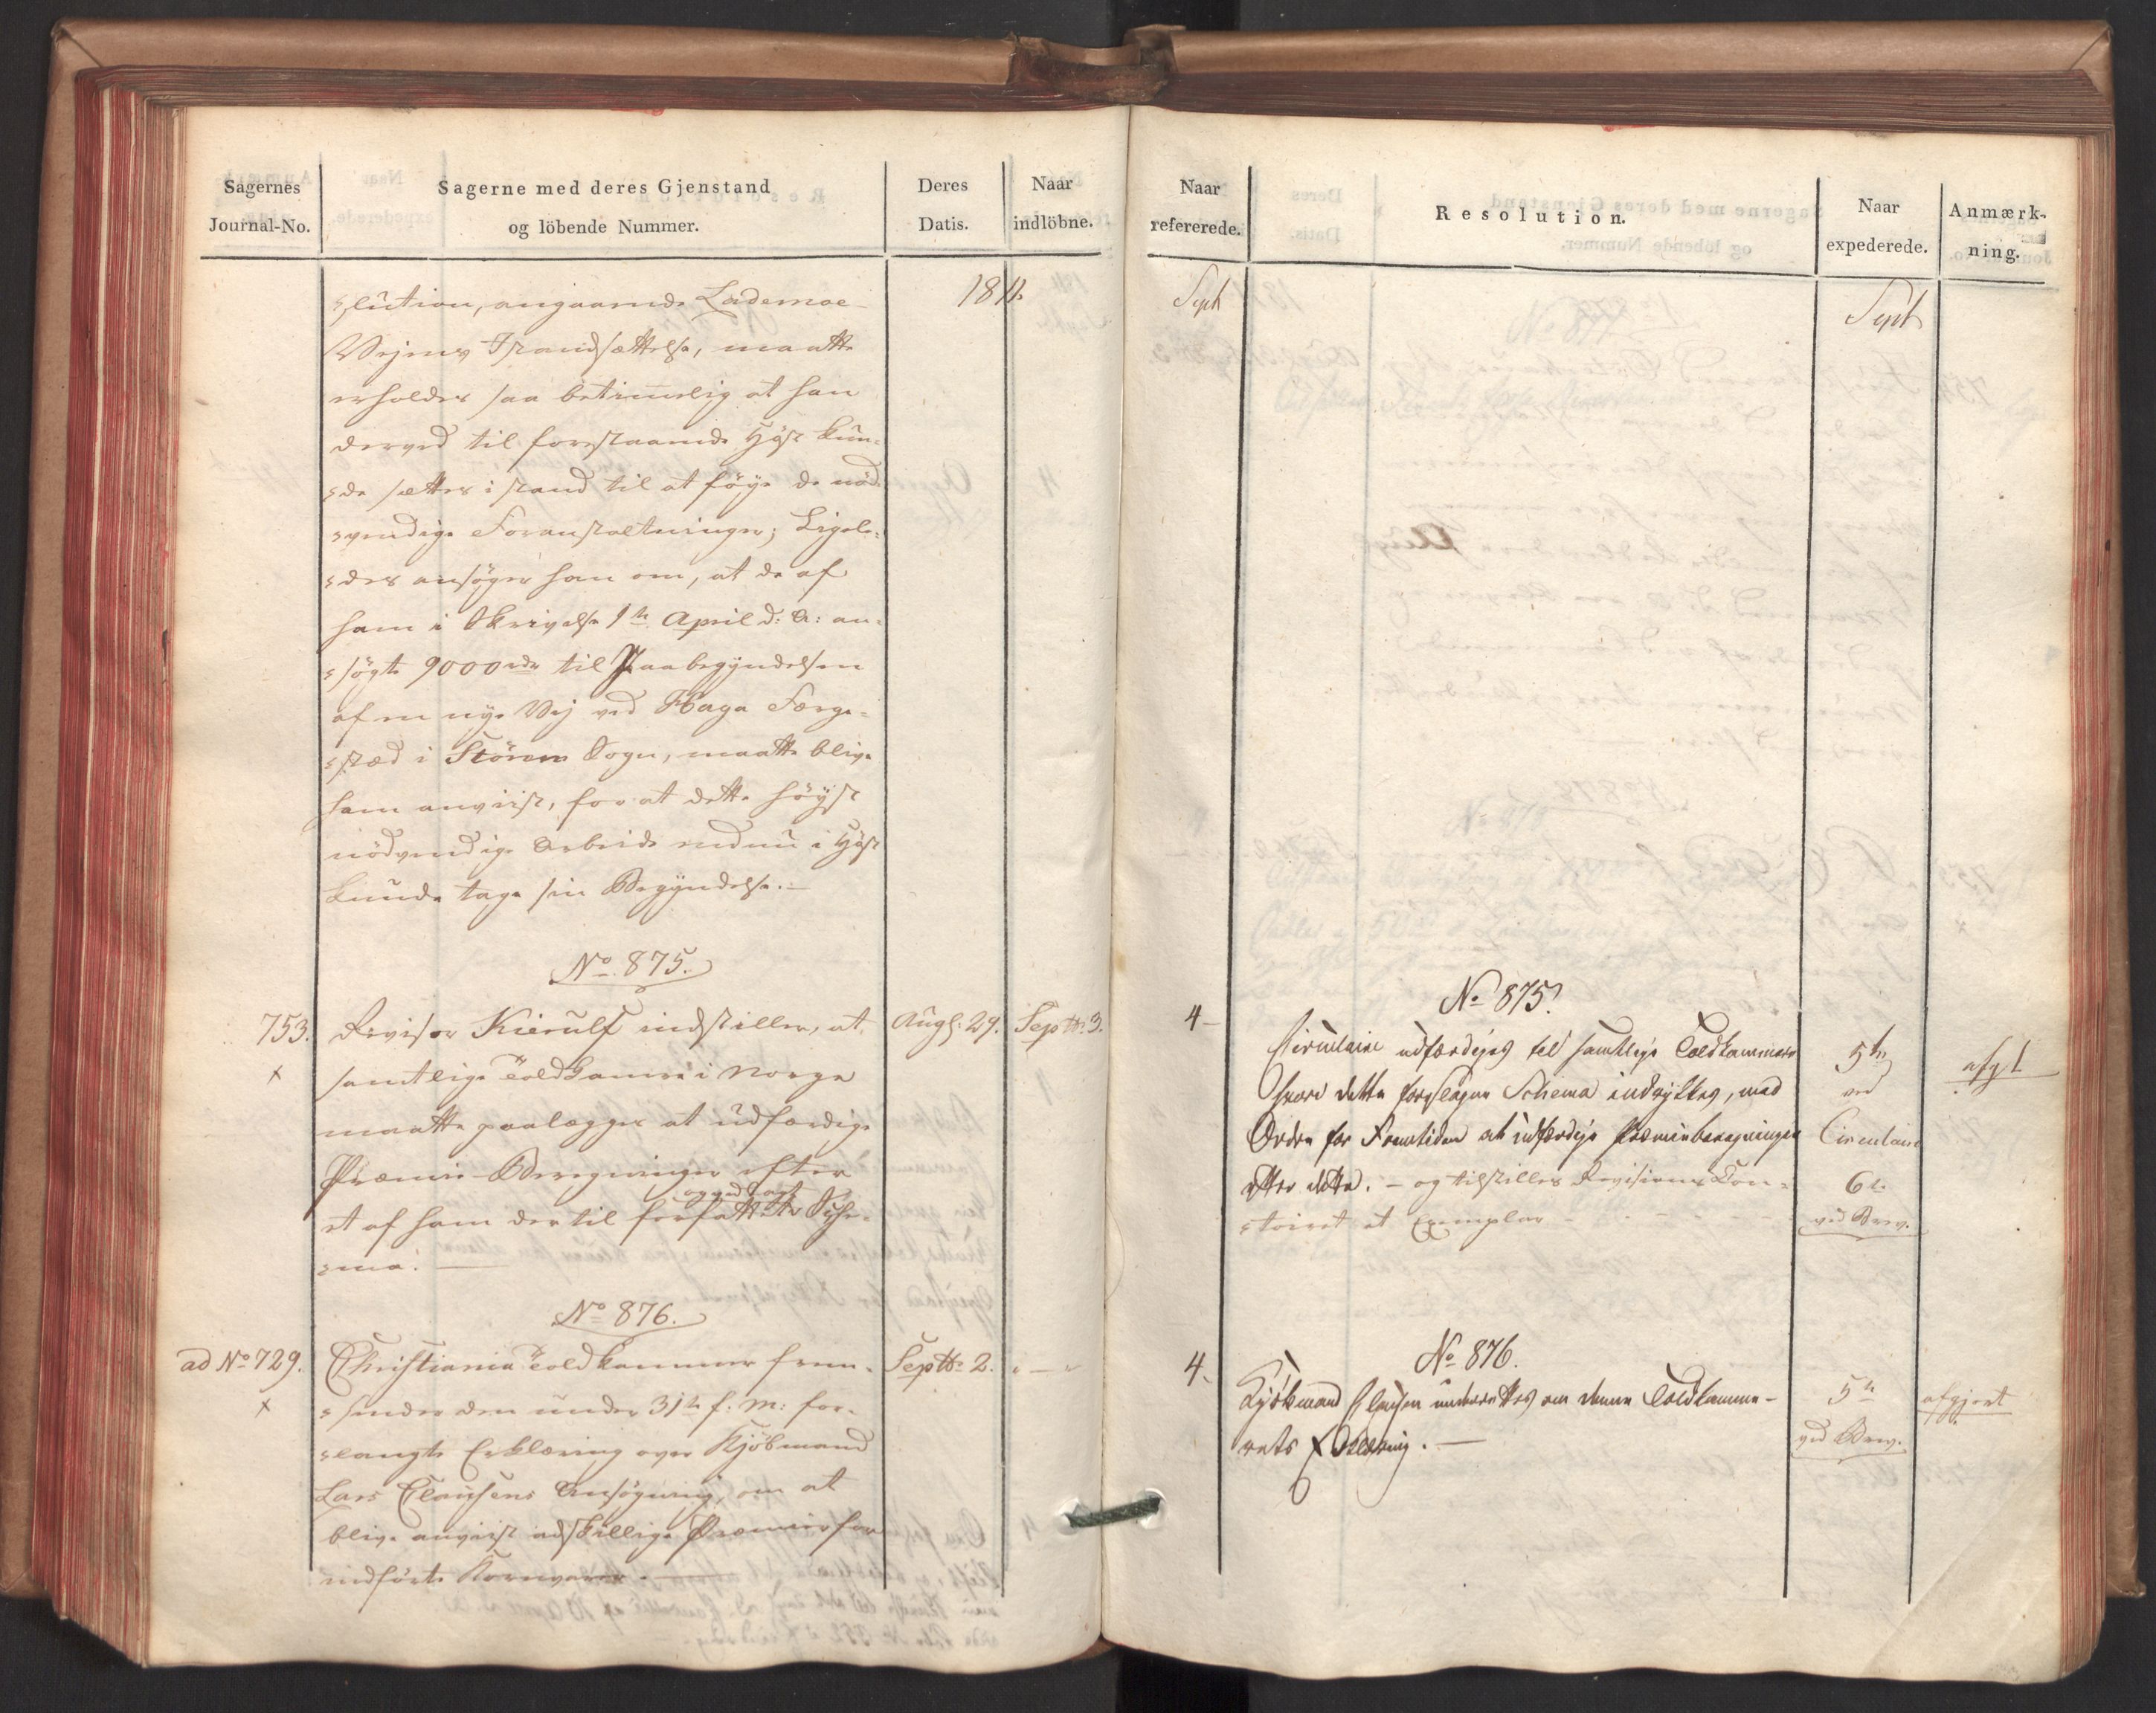 Sagernes
Journal-No.
Sagerne med deres Gjenstand
og löbende Nummer.
Deres
Datis.
Naar
indlöbne.
1811.
slution, angaaende Lademoe
Vejens Istandsættelse, maatte
erholdes saa betimelig at han
derved til forestaaende Høst kun-
de sættes i stand til at föye de nöd-
vendige Foranstaltninger; Ligele-
des ansöger han om, at de af
ham i Skrivelse 1te April d: A: an-
sögte 9000 rdr til Paabegyndelsen
af en nye Vej ved Haga Færge-
stæd i Stören Sogn, maatte blive
ham anviist, for at dette höyst
nödvendige Arbeide endnu i Höst
kunde tage sin Begyndelse.—
No 875.
753.
x
Revisor Kierulf indstiller, at
samtlige Toldkamre i Norge
maatte paalægges at udfærdige
Præmie-Beregninger efter
et af ham der til forfattet Sche-
ma.—
Augs. 29.
Septbr 3.
No 876.
ad No 729.
x
Christiania Toldkammer frem-
sender den under 31te f: M: for-
langte Erklæring over Kjöbmand
Lars Clausens Ansögning, om at
blive anviist adskillige Præmier for
indförte Kornvarer.—
Septbr 2.
" — "
Naar
refererede.
Resolution.
Naar
expederede.
Anmærk-
ning.
Sept
Sept
No 875.
4—
Circulaire udfærdiges til samtlige Toldkammere
hvori dette foreslagne Schema indrykkes, med
Ordre for Fremtiden at udfærdige Præmieberegninger
efter dette. — og tilstilles Revisions Con-
toiret et Exemplar - - - -
5te
ved
Circulaire
6te
ved Brev.
afgt
No 876.
4.
Kjöbmand Clausen underrettes om denne Toldkamme-
rets Erklæring.—
5te
ved Brev.
afgjort